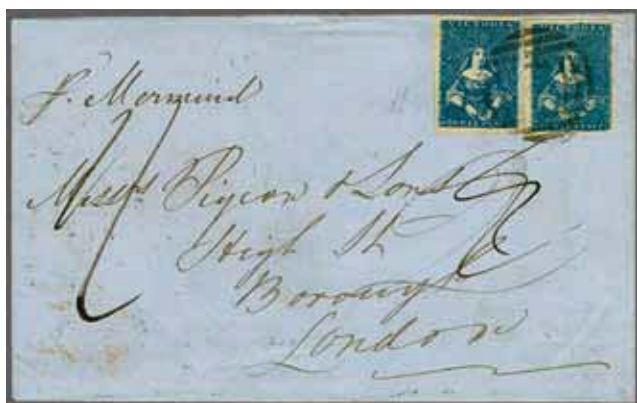 VICTORIA VICTORIA
p. Mermaid
Messrs Pigeon & Sons
High St
Borough
London